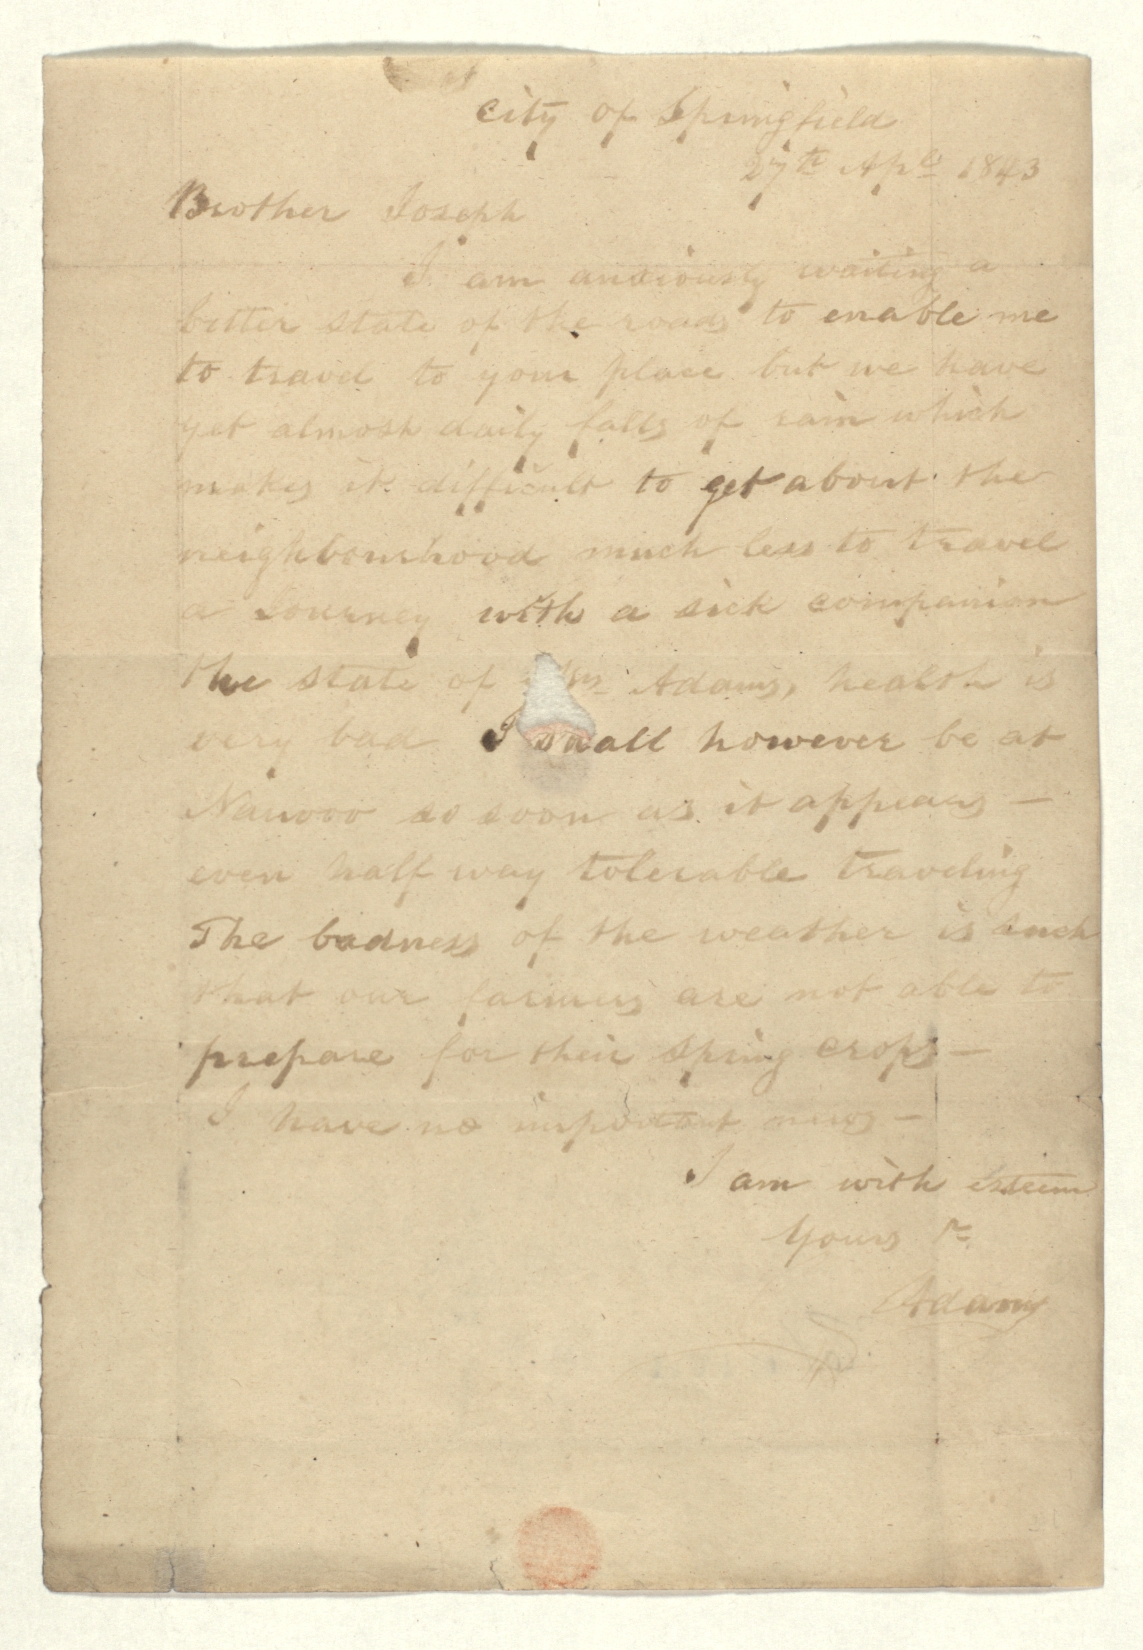 City of Springfield
27th Apl 1843
Brother Joseph
I am anxiously waiting a
better state of the roads to enable me
to travel to your place but we have
yet almost daily falls of rain which
makes it difficult to get about the
neighbourhood much less to travel
a Journey with a sick companion
the state of Mrs Adams, health is
very bad I shall however be at
Nauvoo so soon as it appears —
even half way tolerable traveling
The badness of the weather is such
that our farmers are not able to
prepare for their Spring crops —
I have no important news —
I am with esteem
Yours
Adams